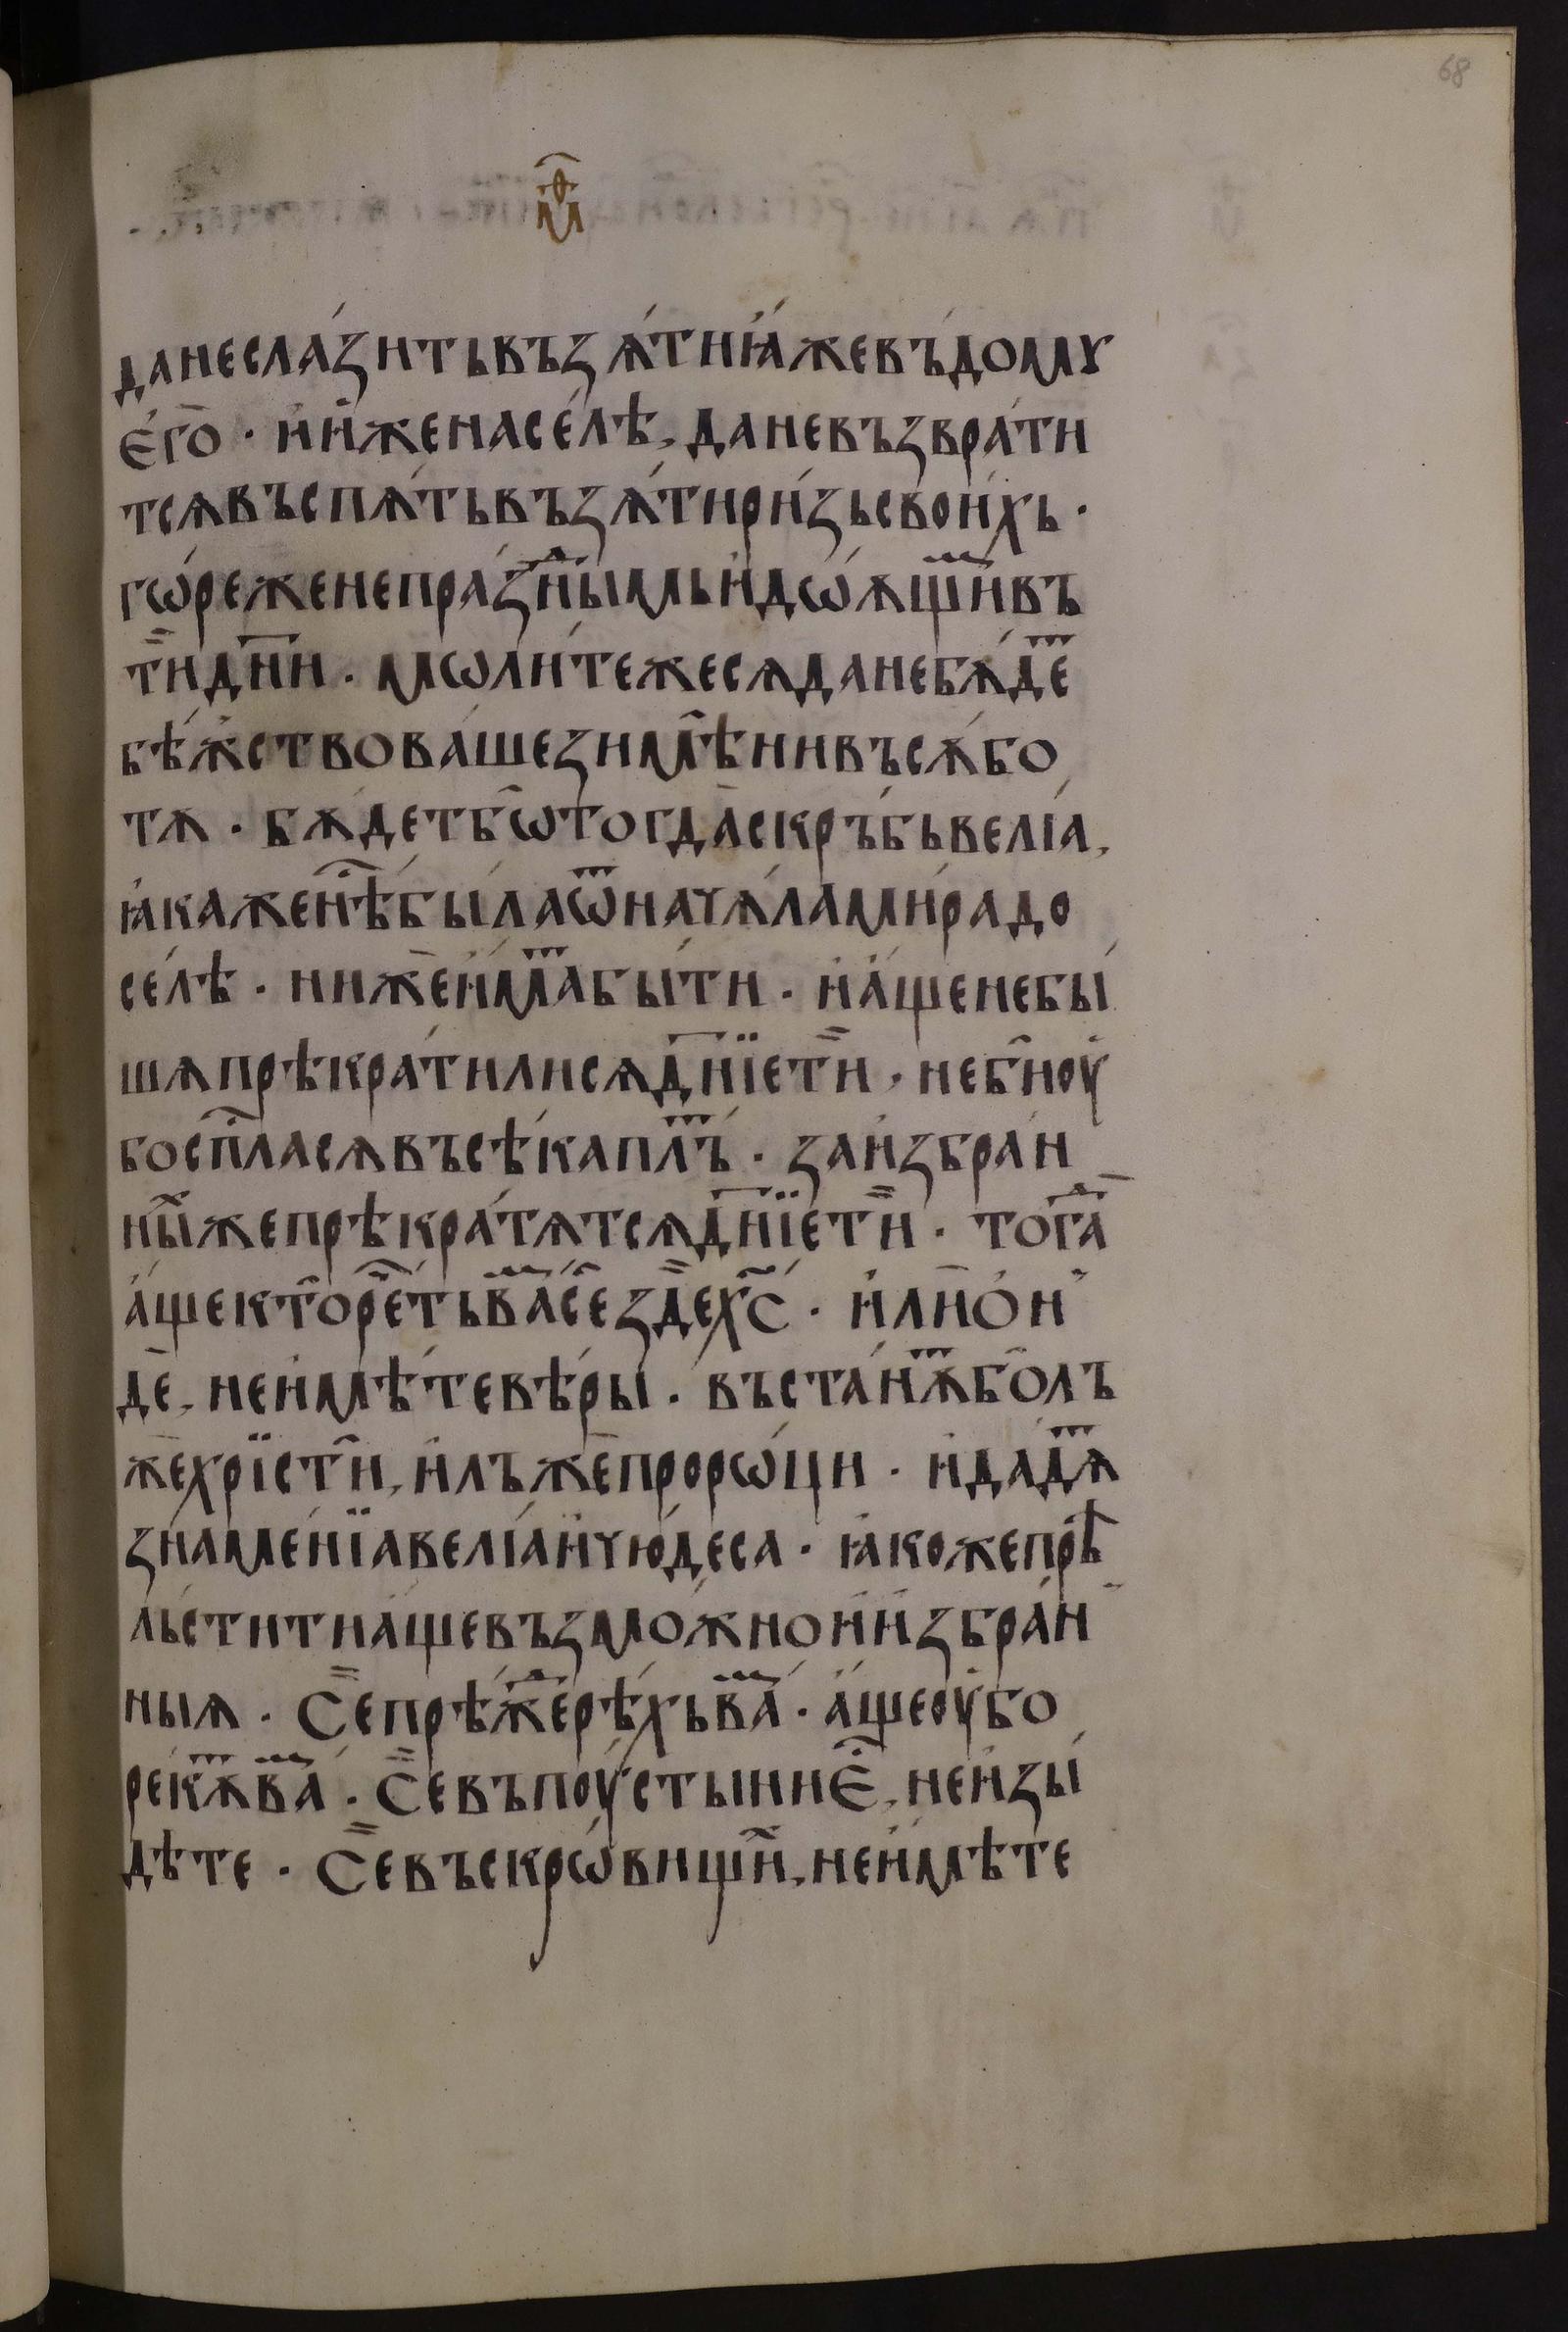 68
м҃ѳ
данеслáзитьвъзѧ́тиꙗ҆́жевъ́домꙋ
є҆гѡ̀ · и҆и҆́женасéлѣ, даневъзврáти
тсѧвъспѧ́тьвъзѧ́тирѝзьсвои́хь ·
гѡ́режененепрáз̑ныⷨмьи҆дѡѧ́щи́ⷨвъ
ти̏дн҃и · мѡли́тежесѧданебѫ́деⷮ
бѣ́жствовáшезимѣ̑нивъсѫ́бо
тѫ · бѫ́детбѡ̑тогда̀скръ́бьвелїа,
ꙗ҆кажене́ⷭ҇ѣбы́лаѿначѧ́лами́радо
сéлѣ · нижѐи҆́маⷮбы́ти · и҆а҆́щенебы́
шѧпрѣкрáтилисѧдн҃їети̏ , неби̑ноу҆
боспⷭ҇ласѧвъсѣ́каплⷮъ · заи҆збрáн
ны̑жепрѣкрáтѧтсѧдн҃їети̏ · тогⷣа
а҆́щекто̑речⷭ҇етьваⷨсе́зде̏хⷭ҇с · и҆ли̏ѻ҆н
дѐ, неи҆мѣ́тевѣ́ры · въстáнѫⷮбо̑лъ
жѐхрїсти̑, и҆лъжѐпрорѡ́ци · и҆дадѧⷮ
знáмéнїавелїа́и҆чюдеса · ꙗ҆́кожепрѣ
льсти́тиа҆́щевъзмо́жнои҆и҆збрáн
ныѧ · Се̏прѣ́жⷣерѣ́хьваⷨ · а҆́щеоу҆бо
рекѫⷮваⷨ · Се̏въпоу́стыниє҆ⷭ҇, неи҆зы́
дѣте · Се̏въскрѡ́вищи̑, неи҆мѣ́те